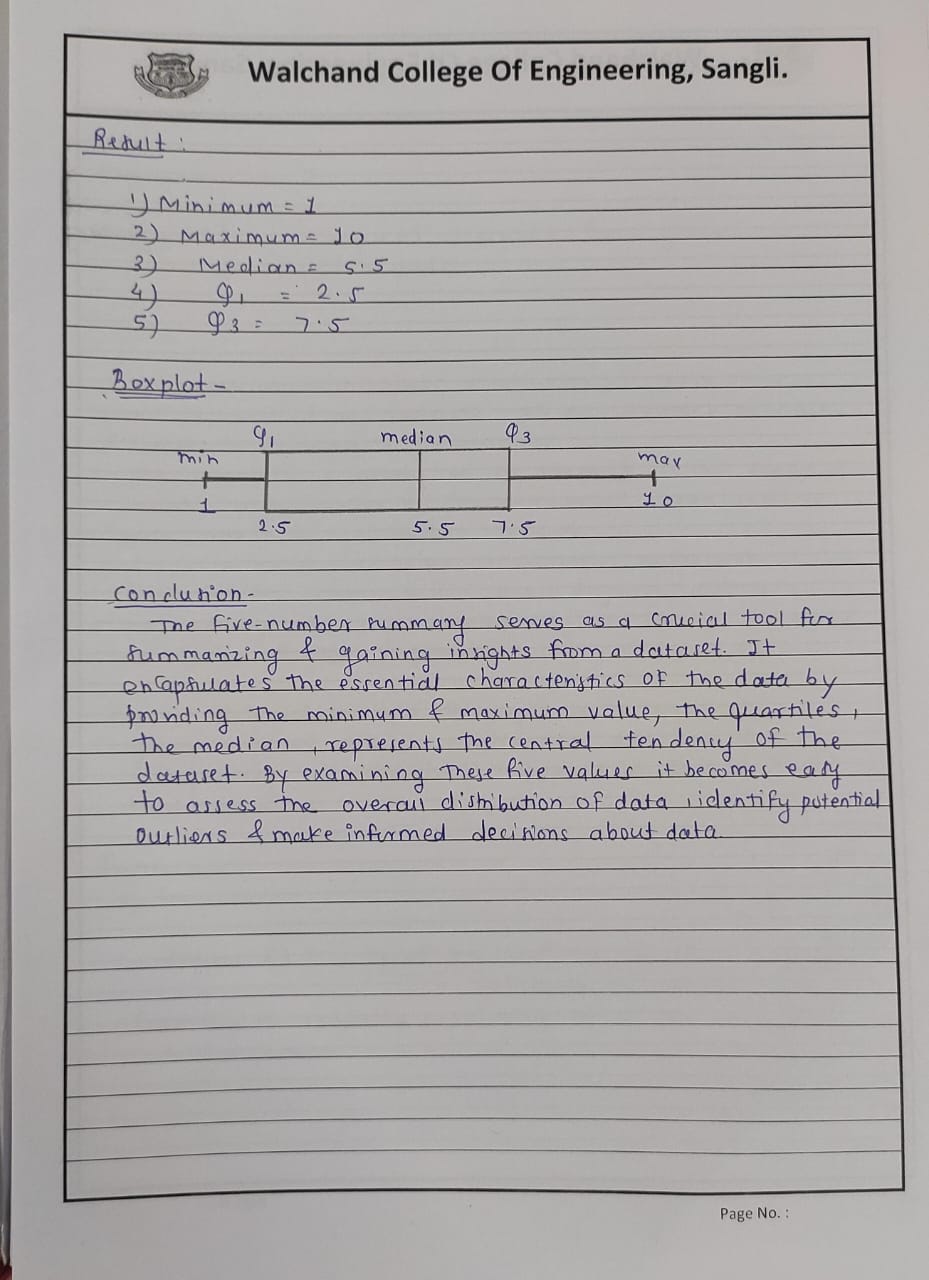 Walchand College Of Engineering, Sangli.
Result :
1) Minimum = 1
2) Maximum = 10
3) Median = 5.5
4) Q1 = 2.5
5) Q3 = 7.5
Boxplot -
Q1 median Q3
min max
1 10
2.5 5.5 7.5
Conclusion -
The five-number summary serves as a crucial tool for
summarizing & gaining insights from a dataset. It
encapsulates the essential characteristics of the data by
providing the minimum & maximum value, the quartiles,
the median, represents the central tendency of the
dataset. By examining these five values it becomes easy
to assess the overall distribution of data, identify potential
outliers & make informed decisions about data.
Page No. :